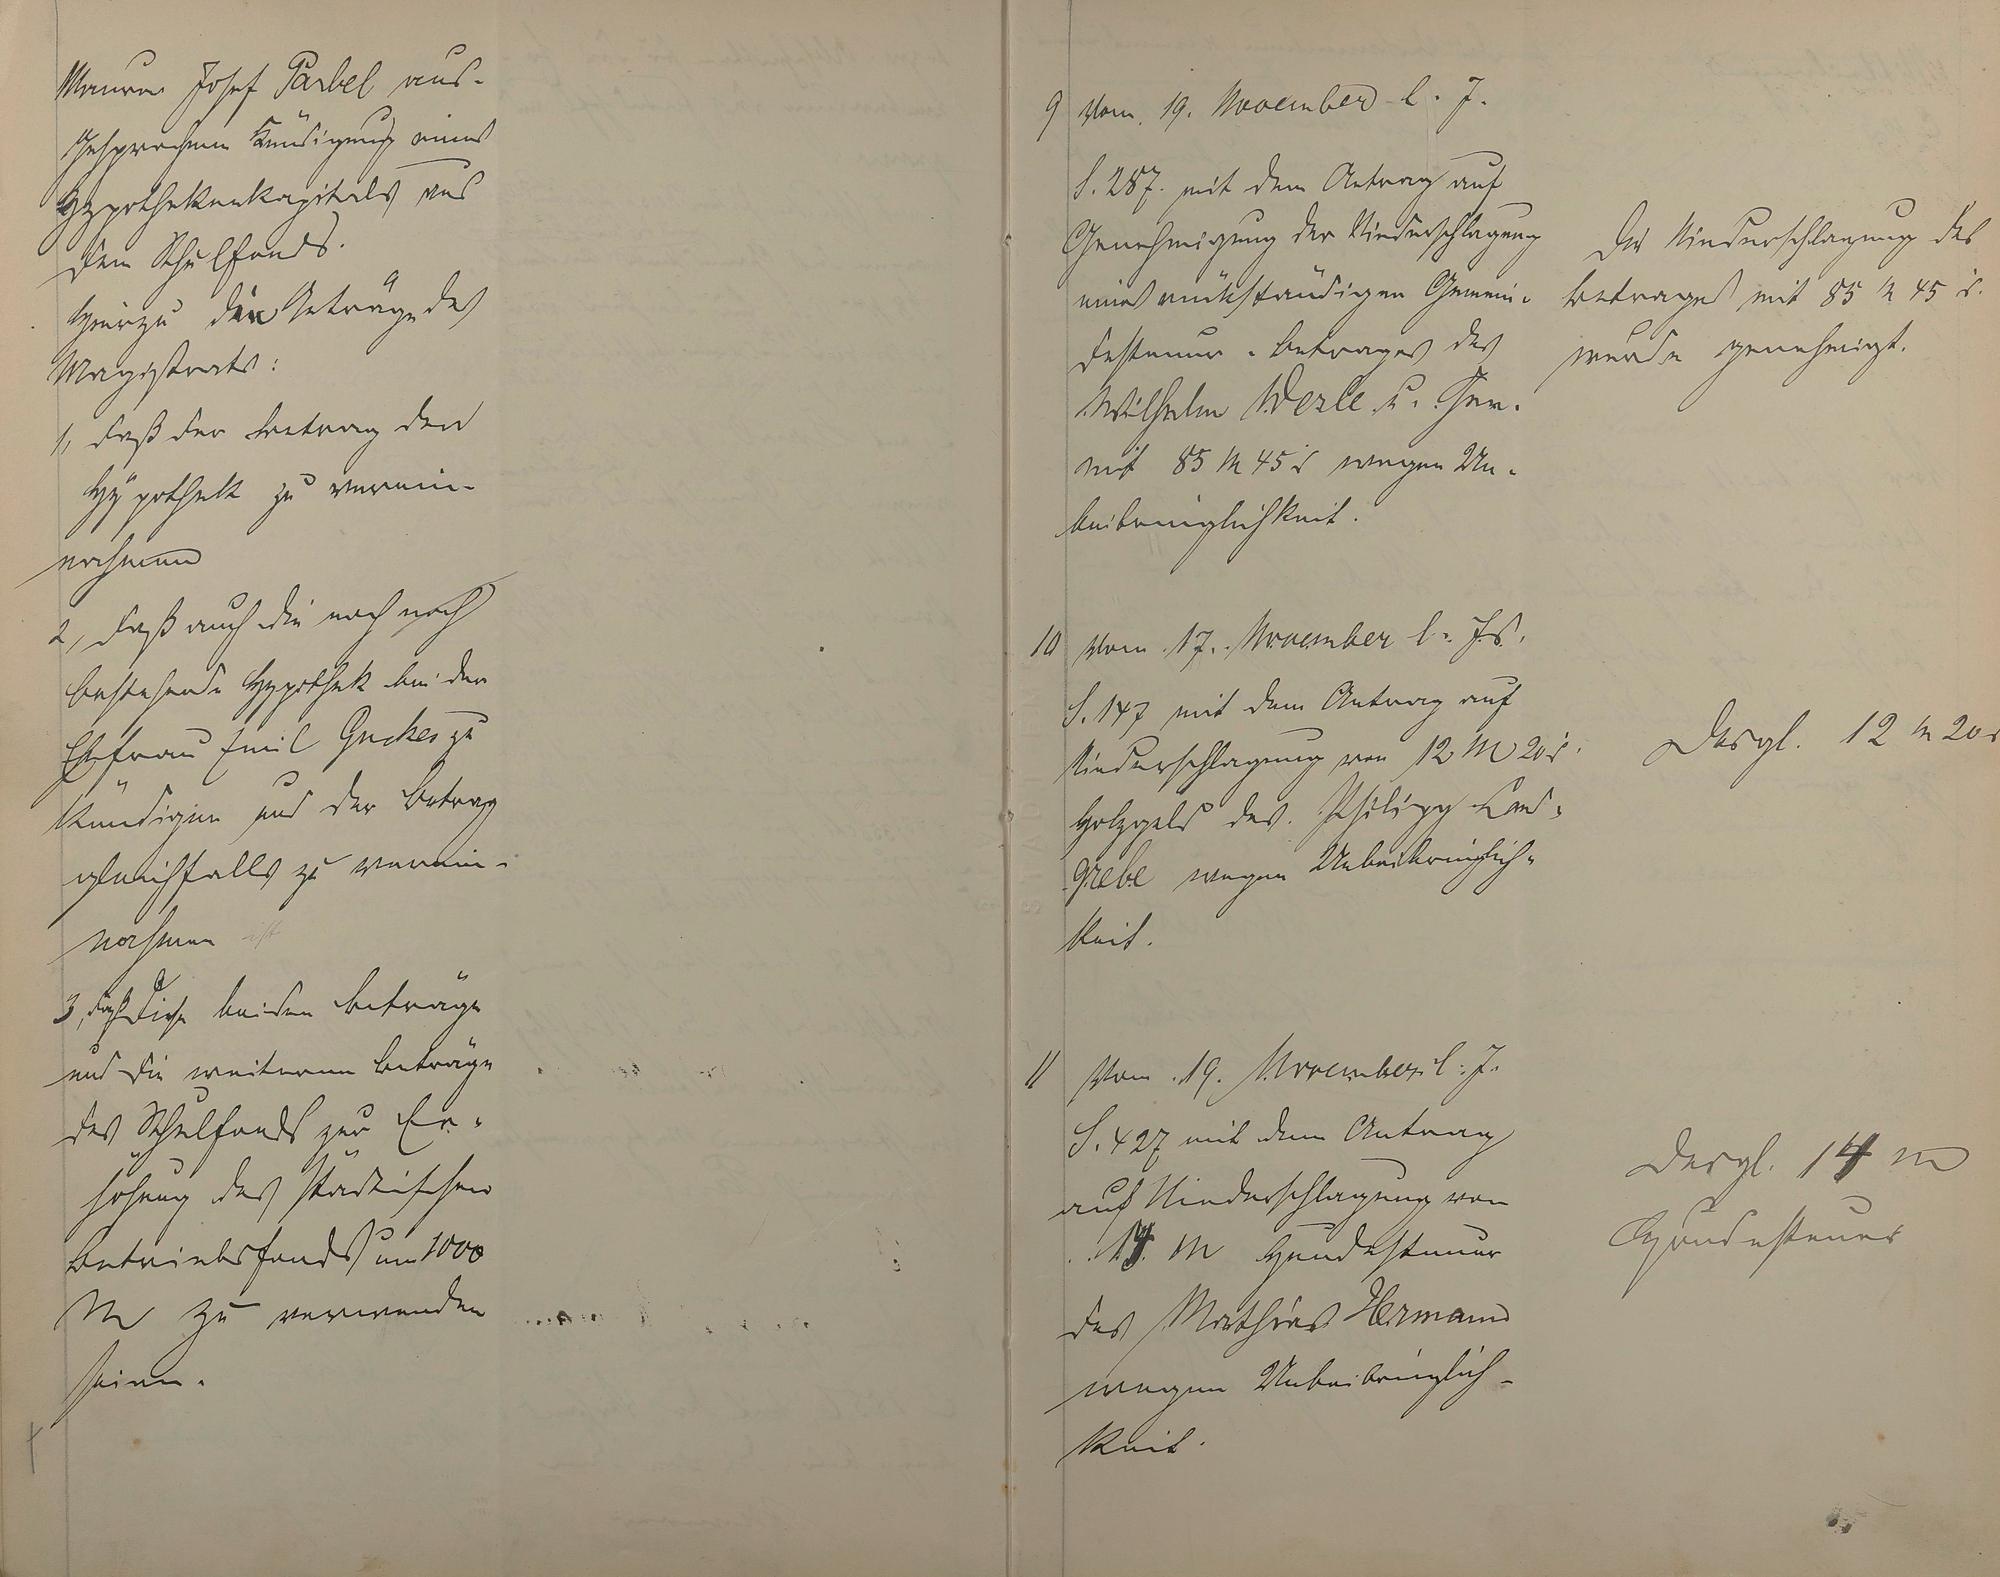 Maurer Josef Parbel aus-
gesprochene Kündigung eines
Hypothekenkapitals aus
dem Schulfonds.
Hierzu die Anträge des
Magistrats:
1, daß der Betrag der
Hypothek zu verein-
nahmen
2, daß auch die noch
bestehende Hypothek bei der
Ehefrau Emil Guckes zu
kündigen und der Betrag
gleichfalls zu verein-
nahmen ist
3, daß diese beiden Beträge
und die weiteren Beträge
des Schulfonds zur Er-
höhung des städtischen
Betriebsfonds um 1000
M zu verwenden
seien.
9 Vom 19. November l. J.
S. 287. mit dem Antrag auf
Genehmigung der Niederschlagung
eines rückständigen Gemein-
desteuer-Betrages des
Wilhelm Werle u. Gen.
mit 85 M 45 ₰ wegen Un-
beibringlichkeit.
Die Niederschlagung des
Betrages mit 85 M 45 ₰.
wurde genehmigt.
10 Vom 17. November l. Js.
S. 147 mit dem Antrag auf
Niederschlagung von 12 M 20 ₰.
Holzgeld des Philipp Lan-
grebe wegen Unbeibringlich-
keit.
Desgl. 12 M 20 ₰
11 Vom 19. November l. J.
S. 427 mit dem Antrag
auf Niederschlagung von
14 M Hundesteuer
des Mathias Hermann
wegen Unbeibringlich-
keit.
Desgl. 14 M
Hundesteuer